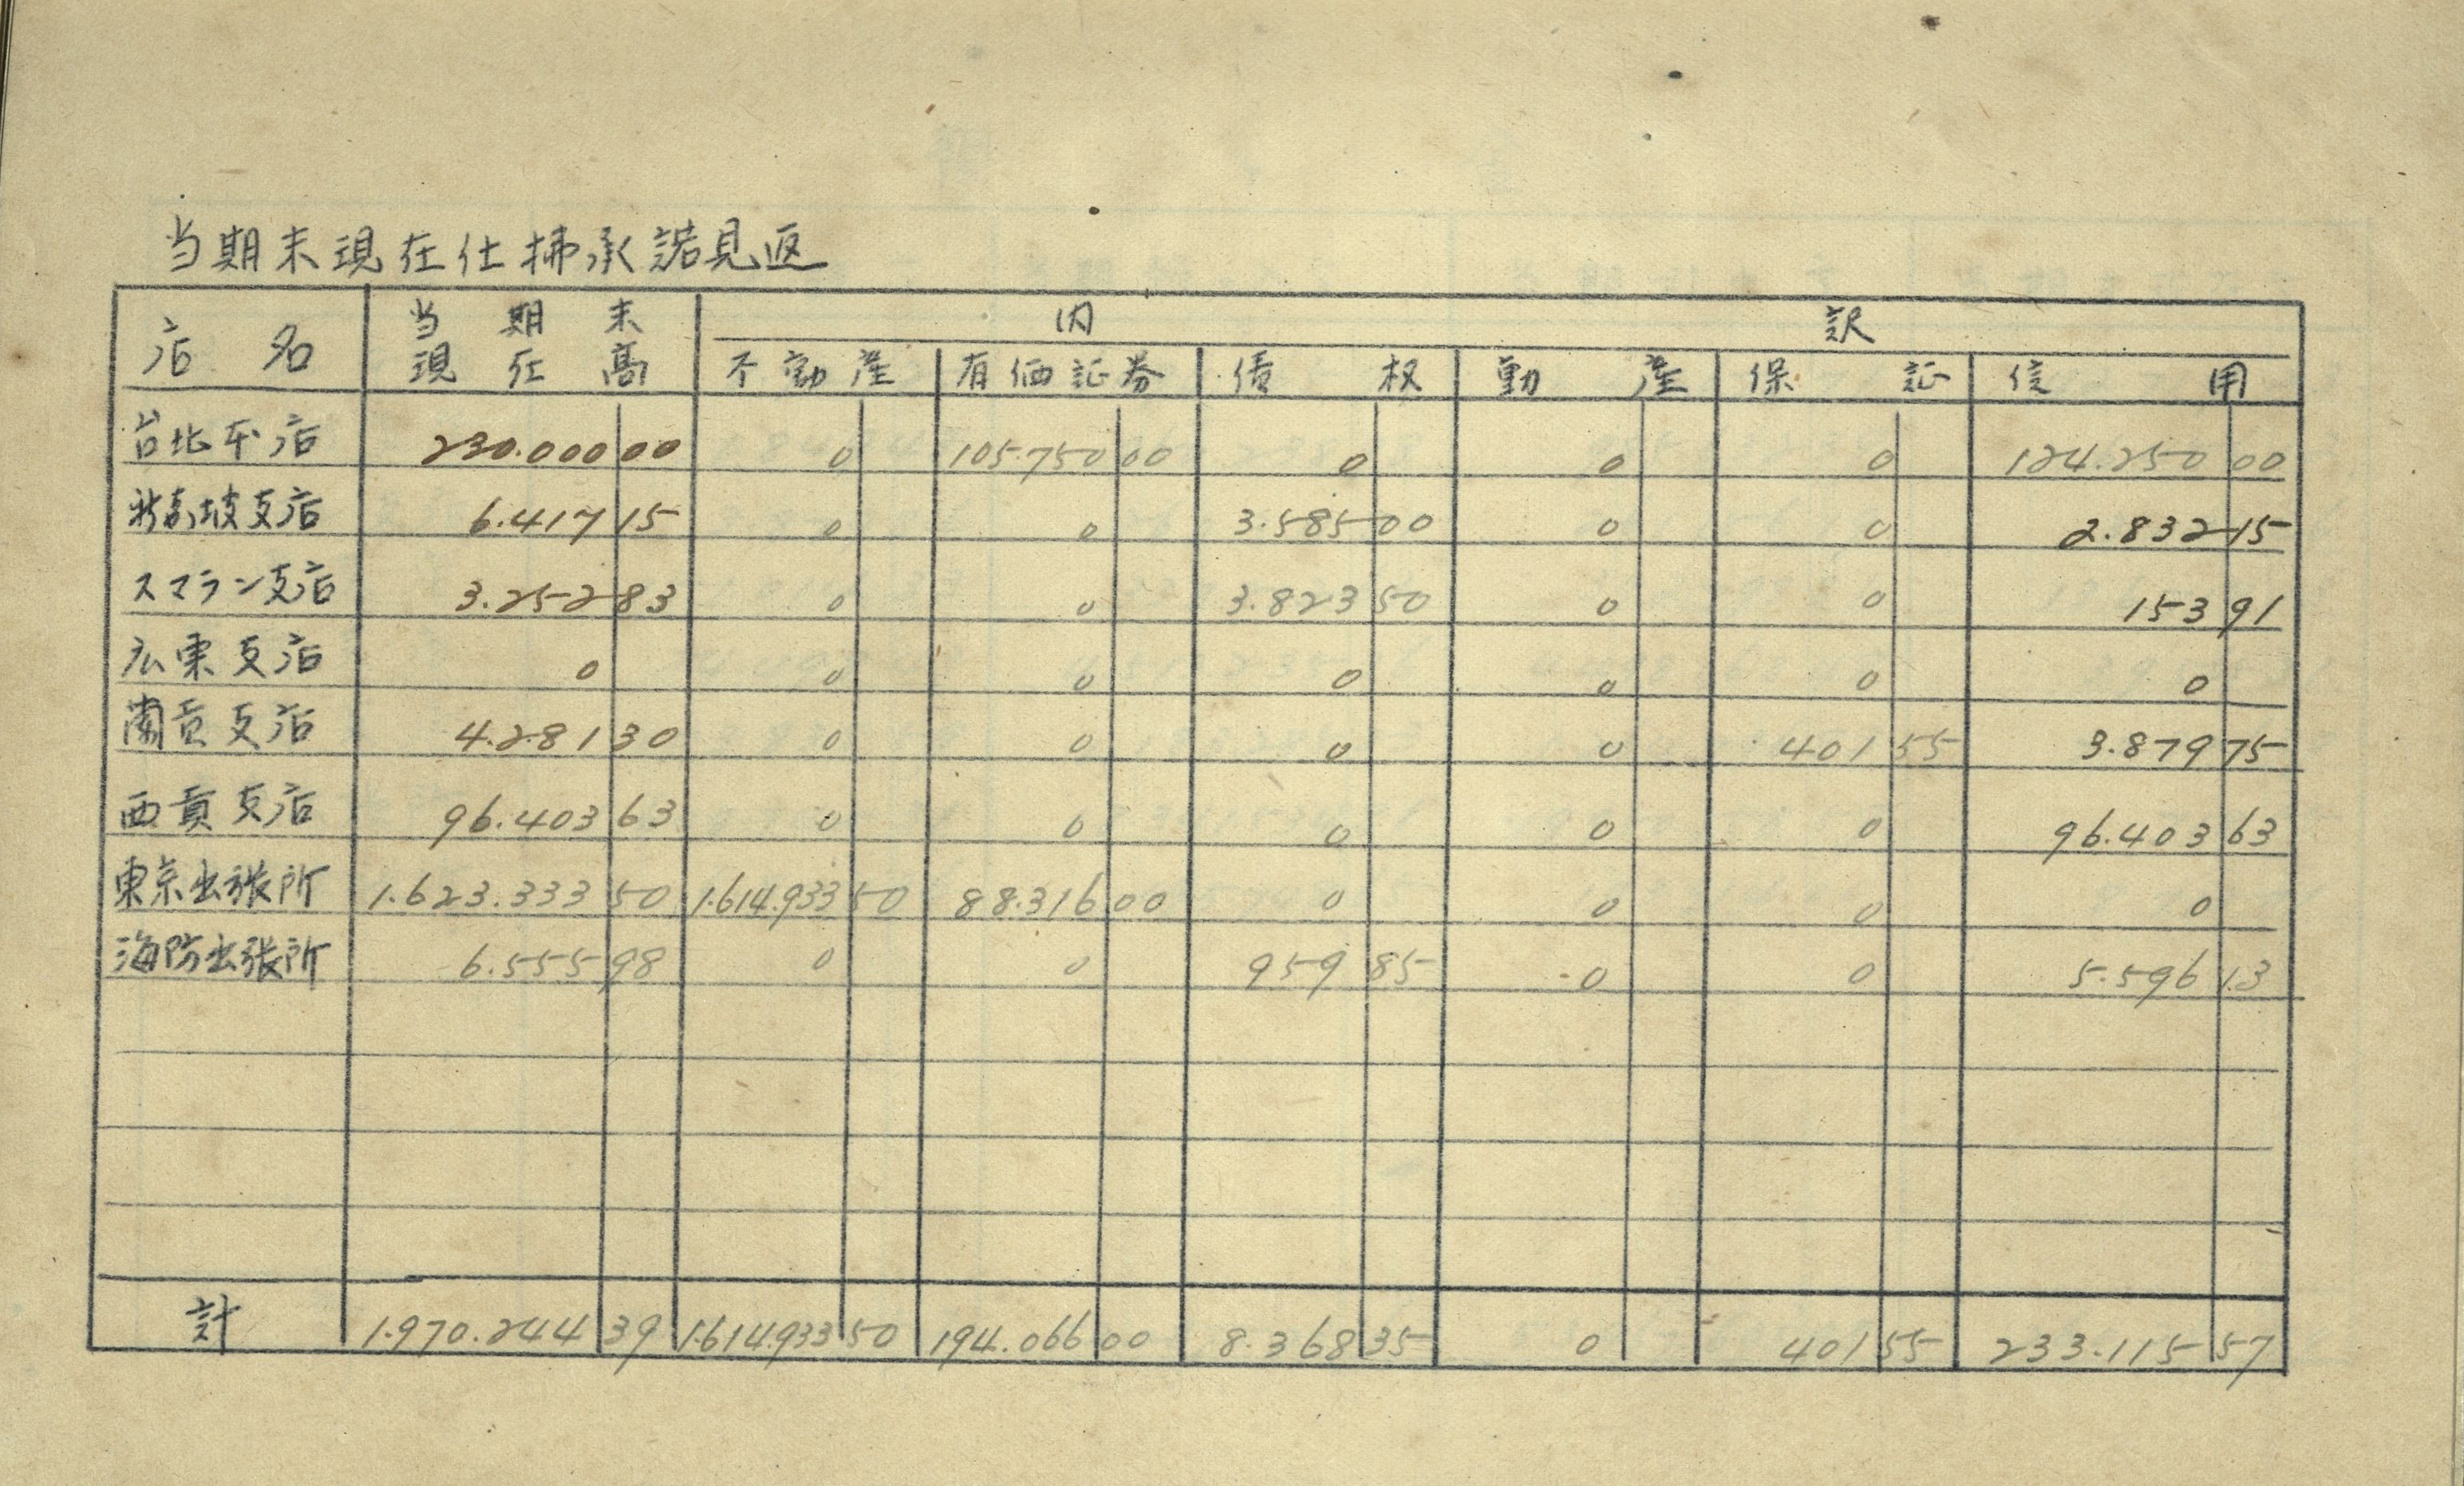 当期末現在仕拂承諾見返
店名 当期末現在高 内訳
不動産 有価証券 債权 動産 保証 信用
台北本店 230.000 00 0 105.750 00 0 0 0 124.250 00
新嘉坡支店 6.417 15 0 0 3.585 00 0 0 2.832 15
スマラン支店 3.252 83 0 0 3.823 50 0 0 153 91
広東支店 0 0 0 0 0 0 0
蘭貢支店 4.281 30 0 0 0 0 401 55 3.879 75
西貢支店 96.403 63 0 0 0 0 0 96.403 63
東京出張所 1.623.333 50 1.614.933 50 88.316 00 0 0 0 0
海防出張所 6.555 98 0 0 959 85 0 0 5.596 13
計 1.970.244 39 1.614.933 50 194.066 00 8.368 35 0 401 55 233.115 57